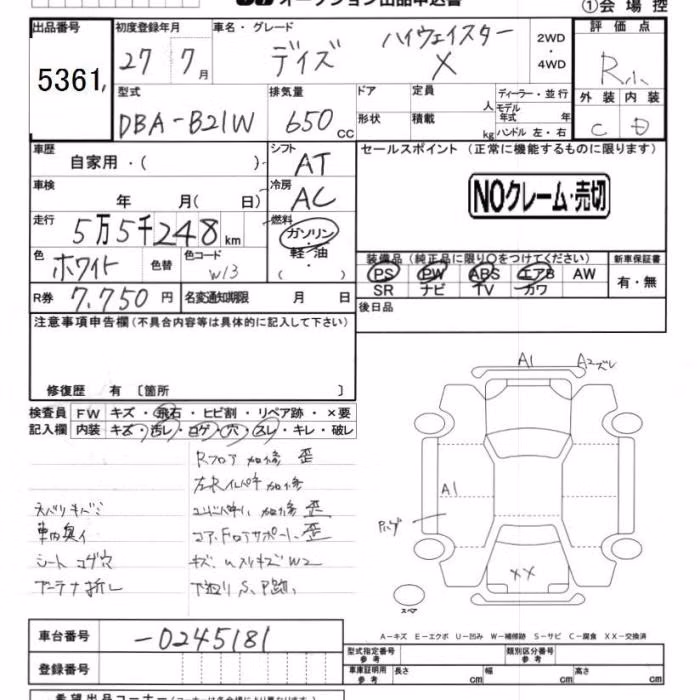 オークション出品申込書
①会場控
出品番号 初度登録年月 車名・グレード 2WD・4WD 評価点
5361 27 7月 デイズ ハイウェイスター X R
型式 排気量 ドア 定員 人 ディーラー・並行 外装 内装
DBA-B21W 650cc 形状 積載 kg モデル年式 年 ハンドル 左・右 C D
車歴 自家用・( ) シフト AT セールスポイント (正常に機能するものに限ります)
車検 年 月( 日) 冷房 AC NOクレーム・売切
走行 5万5千248km 燃料 ガソリン・軽・油・( )
色 ホワイト 色替 色コード W13 装備品 (純正品に限り○をつけてください) 新車保証書
PS PW ABS エアB AW 有・無
SR ナビ TV カワ
R券 7,750円 名変通知期限 月 日 後日品
注意事項申告欄(不具合内容等は具体的に記入して下さい)
修復歴 有 〔箇所 〕
A1 A2ズレ
検査員 FW キズ・飛石・ヒビ割・リペア跡・×要
記入欄 内装 キズ・汚レ・コゲ・穴・スレ・キレ・破レ
Rフロア 加修 歪
A1
シート コゲ穴
XX
アンテナ折し
A-キズ E-エクボ U-凹み W-補修跡 S-サビ C-腐食 XX-交換済
車台番号 -0245181 型式指定番号 参考 類別区分番号 参考
登録番号 車庫証明用 参考 長さ cm 幅 cm 高さ cm
希望出品コーナー